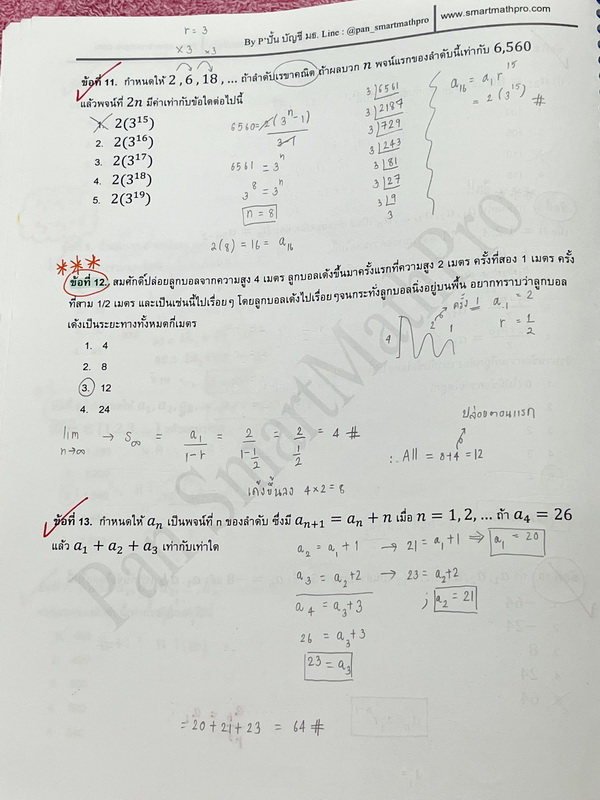 r = 3
×3 ×3
By P'ปั้น บัญชี มธ. Line : @pan_smartmathpro
www.smartmathpro.com
ข้อที่ 11. กำหนดให้ 2 , 6 , 18 , ... ถ้าลำดับเรขาคณิต ถ้าผลบวก n พจน์แรกของลำดับนี้เท่ากับ 6,560
แล้วพจน์ที่ 2n มีค่าเท่ากับข้อใดต่อไปนี้
1. 2(3¹⁵)
2. 2(3¹⁶)
3. 2(3¹⁷)
4. 2(3¹⁸)
5. 2(3¹⁹)
6560 = 2(3ⁿ-1)
3-1
6561 = 3ⁿ
3⁸ = 3ⁿ
n = 8
2(8) = 16 = a₁₆
3 6561
3 2187
3 729
3 243
3 81
3 27
3 9
3
a₁₆ = a₁r¹⁵
= 2(3¹⁵) #
ข้อที่ 12. สมศักดิ์ปล่อยลูกบอลจากความสูง 4 เมตร ลูกบอลเด้งขึ้นมาครั้งแรกที่ความสูง 2 เมตร ครั้งที่สอง 1 เมตร ครั้ง
ที่สาม 1/2 เมตร และเป็นเช่นนี้ไปเรื่อยๆ โดยลูกบอลเด้งไปเรื่อยๆจนกระทั่งลูกบอลนิ่งอยู่บนพื้น อยากทราบว่าลูกบอล
เด้งเป็นระยะทางทั้งหมดกี่เมตร
1. 4
2. 8
3. 12
4. 24
ครั้ง 1 a₁ = 2
4 2 1
r = 1/2
lim n→∞ → S∞ = a₁/1-r = 2/1-1/2 = 2/1/2 = 4 #
ปล่อยตอนแรก
∴ All = 8+4 = 12
เด้งขึ้นลง 4×2 = 8
ข้อที่ 13. กำหนดให้ aₙ เป็นพจน์ที่ n ของลำดับ ซึ่งมี aₙ₊₁ = aₙ + n เมื่อ n = 1, 2, ... ถ้า a₄ = 26
แล้ว a₁ + a₂ + a₃ เท่ากับเท่าใด
a₂ = a₁+1 → 21 = a₁+1 ⇒ a₁ = 20
a₃ = a₂+2 → 23 = a₂+2
a₄ = a₃+3 ; a₂ = 21
26 = a₃+3
23 = a₃
= 20+21+23 = 64 #
Pan SmartMathPro